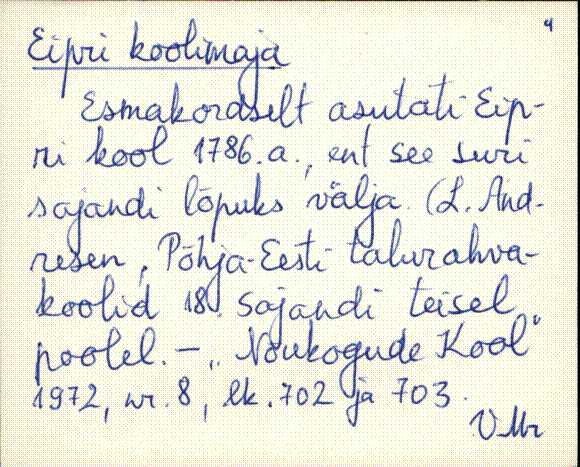 4
Eipri koolimaja
Esmakordselt asutati Eip-
ri kool 1786.a., ent see suri
sajandi lõpuks välja. (L. And-
resen, Põhja-Eesti talurahva-
koolid 18. sajandi teisel
poolel. — „Nõukogude Kool"
1972, nr. 8, lk. 702 ja 703.